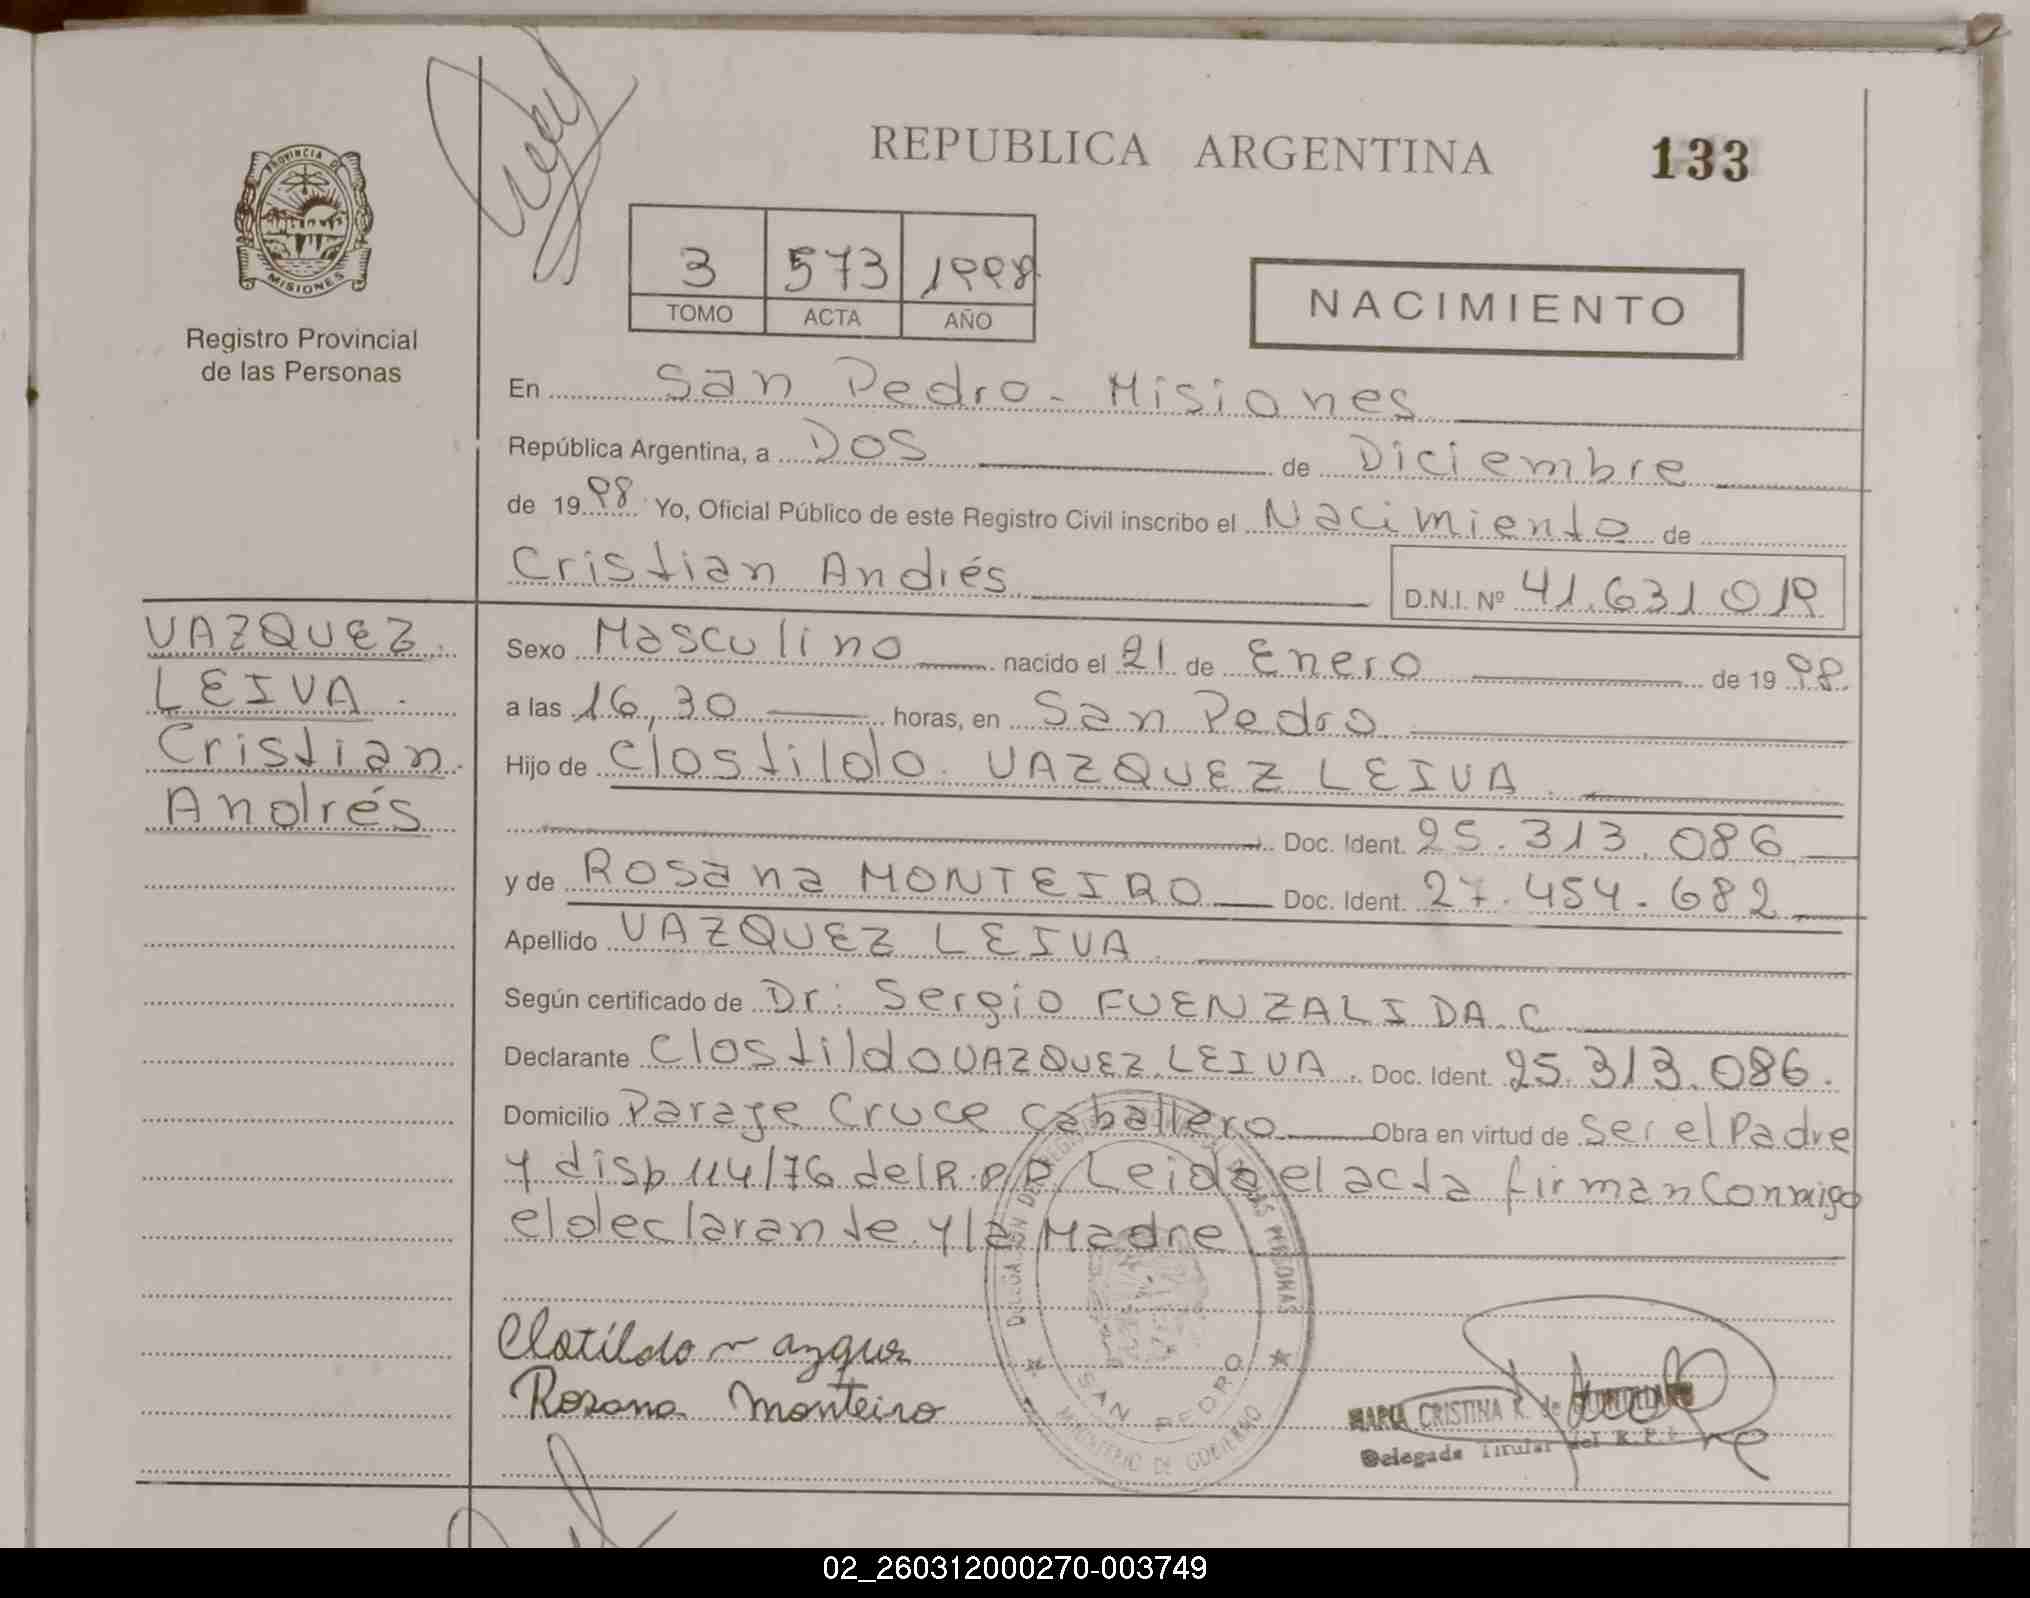 REPUBLICA ARGENTINA
133
PROVINCIA DE MISIONES
Registro Provincial
de las Personas
3 573 1998
TOMO ACTA AÑO
NACIMIENTO
En San Pedro - Misiones
República Argentina, a DOS de Diciembre
de 1998 Yo, Oficial Público de este Registro Civil inscribo el Nacimiento de
Cristian Andrés D.N.I. Nº 41.631.019
VAZQUEZ
LEIVA
Cristian
Andrés
Sexo Masculino nacido el 21 de Enero de 1998
a las 16,30 horas, en San Pedro
Hijo de Clostildo VAZQUEZ LEIVA
Doc. Ident. 25.313.086
y de Rosana MONTEIRO Doc. Ident. 27.454.682
Apellido VAZQUEZ LEIVA
Según certificado de Dr: Sergio FUENZALIDA C
Declarante Clostildo VAZQUEZ LEIVA. Doc. Ident. 25.313.086.
Domicilio Paraje Cruce Caballero Obra en virtud de Ser el Padre
y disp 114/76 del R.P.P. Leida el acta firman Conmigo
el declarante y la Madre
Clotildo vazquez
Rosana Monteiro
SAN PEDRO
MINISTERIO DE GOBIERNO
MARIA CRISTINA R. de
Delegada Titular del R.P.P.
02_260312000270-003749